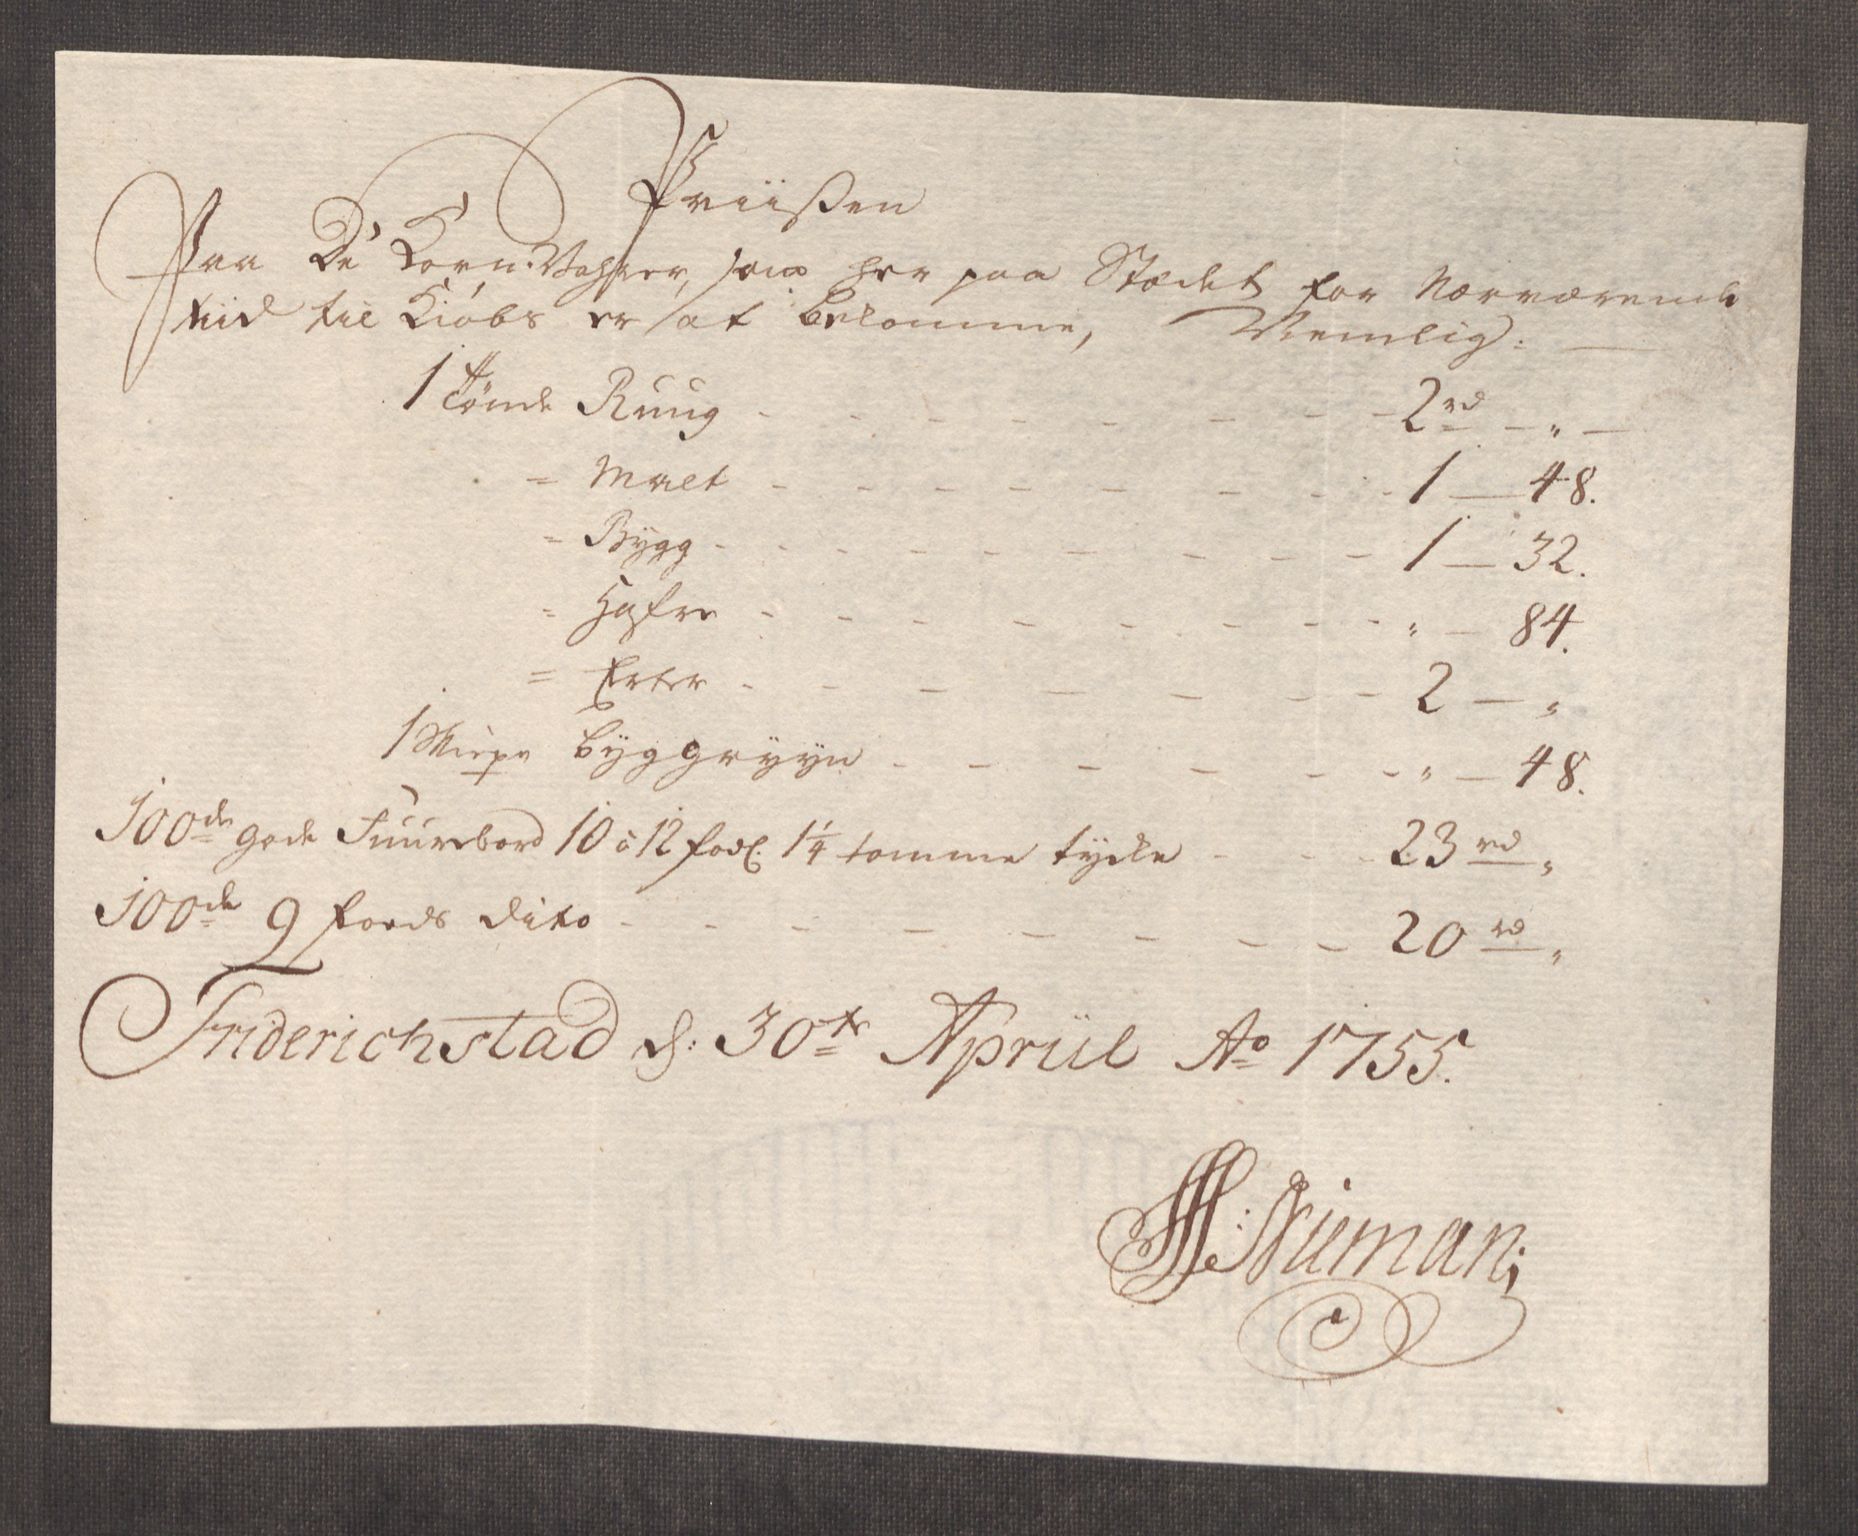 Priisen
Paa De Korn-Vahrer, som her paa Stædet for Nærværende
tiid til Kiöbs er at bekomme, Nemlig:
1 Tönde Ruug - - - - - - - 2 rd - " -
= Malt - - - - - - - 1 - 48.
= Bÿgg - - - - - - - 1 - 32.
= Hafre - - - - - - - " - 84.
= Erter - - - - - - - 2 - "
1 Skiepe bÿggrÿÿn - - - - - - " - 48.
100de gode Fuurebord 10 à 12 fods. 1 1/4 tomme tÿcke - - - 23 rd "
100de 9 foeds dito - - - - - - - 20 rd "
Friderichstad d: 30te Apriil Ao 1755.
Nieman;